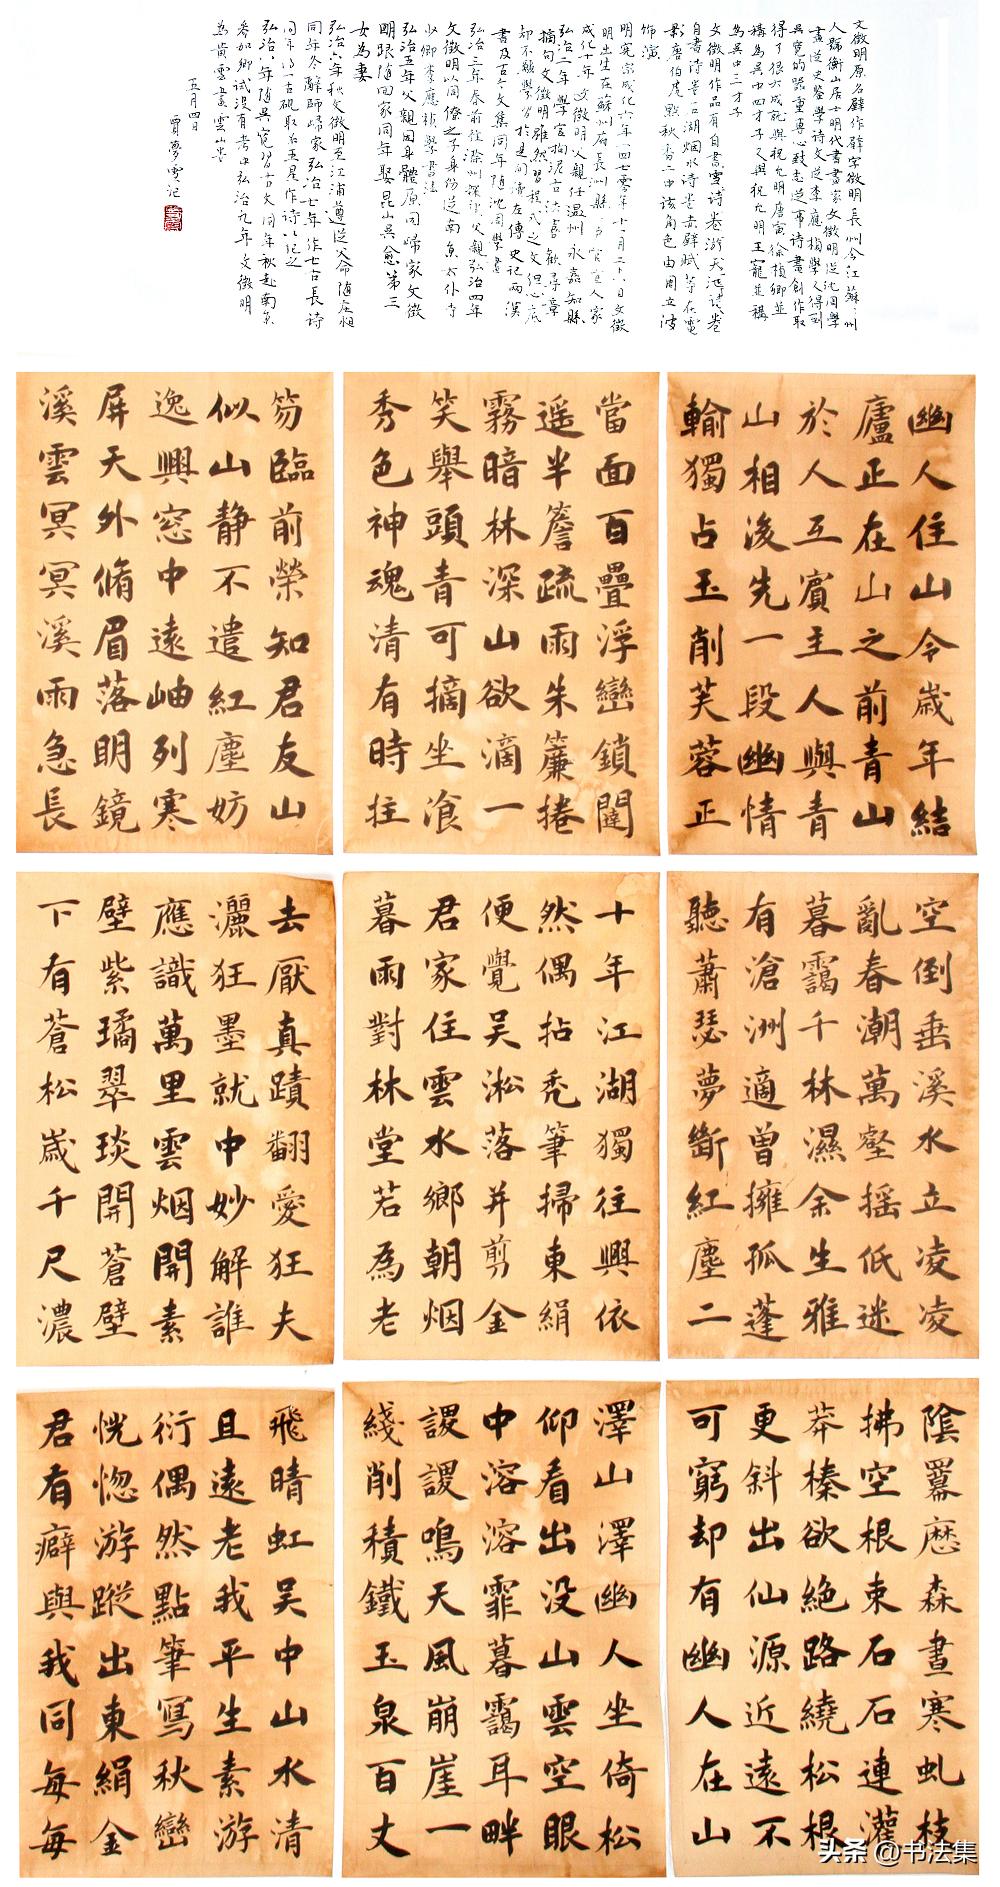 文徵明原名壁作壁字徵明長州今江蘇蘇州
人號衡山居士明代書畫家文徵明從沈周學
畫從史鑒學詩文從李應楨學人得到
吳寬的器重專心致志從事詩畫創作取
得了很大成就與祝允明唐寅徐楨卿並
構為吳中四才子又與祝允明王寵並稱
為吳中三才子
文徵明作品有自書雪詩卷游天池詩卷
自書詩卷石湖烟水詩卷赤壁賦等在電
影唐伯虎點秋香二中該角色由周立波
飾演
明憲宗成化六年一四七零年十一月二十八日文徵
明出生在蘇州府長洲縣一戶官宦人家
成化十年文徵明父親任温州永嘉知縣
弘治二年學官拘泥古法喜歡尋章
摘句文徵明雖然習程式之文但心底
却不願學習於是同濤左傳史記兩漢
書及古今文集同年隨沈周學畫
弘治三年春前往滁州探望父親弘治四年
文徵明以同僚之子身份從南京太仆寺
少卿李應楨學書法
弘治五年父親因身體原因歸家文徵
明跟隨回家同年娶昆山吳愈第三
女為妻
弘治六年秋文徵明至江浦遵從父命隨莊昶
同年冬辭師歸家弘治七年作古石長詩
同年得一古硯取名五星作詩以記之
弘治八年隨吳寬習古文同年秋赴南京
參加鄉試没有考中弘治九年文徵明
為黄雲畫雲山卷
五月四日
賈夢雪記
幽人住山今歲年結
廬正在山之前青山
於人互賓主人與青
山相後先一段幽情
輸獨占玉削芙蓉正
當面百疊浮巒鎖闥
遥半簷疏雨朱簾捲
霧暗林深山欲滴一
笑舉頭青可摘坐飡
秀色神魂清有時拄
笏臨前榮知君友山
似山静不遣紅塵妨
逸興窓中遠岫列寒
屏天外脩眉落明鏡
溪雲冥冥溪雨急長
空倒垂溪水立凌凌
亂春潮萬壑摇低迷
暮靄千林濕余生雅
有滄洲適曾擁孤蓬
聽蕭瑟夢斷紅塵二
十年江湖獨往興依
然偶拈秃筆掃東絹
便覺吴淞落并剪金
君家住雲水鄉朝烟
暮雨對林堂若為老
去厭真蹟翻愛狂夫
灑狂墨就中妙解誰
應識萬里雲烟開素
壁紫璚翠琰開蒼壁
下有蒼松歲千尺濃
陰羃歷森晝寒虬枝
拂空根束石石連灌
莽榛欲絶路繞松根
更斜出仙源近遠不
可窮却有幽人在山
澤山澤幽人坐倚松
仰看出没山雲空眼
中溶溶霏暮靄耳畔
謖謖鳴天風崩崖一
綫削積鐵玉泉百丈
飛晴虹吴中山水清
且遠老我平生素游
衍偶然點筆寫秋巒
恍惚游蹤出東絹金
君有癖與我同每每
头条 @书法集